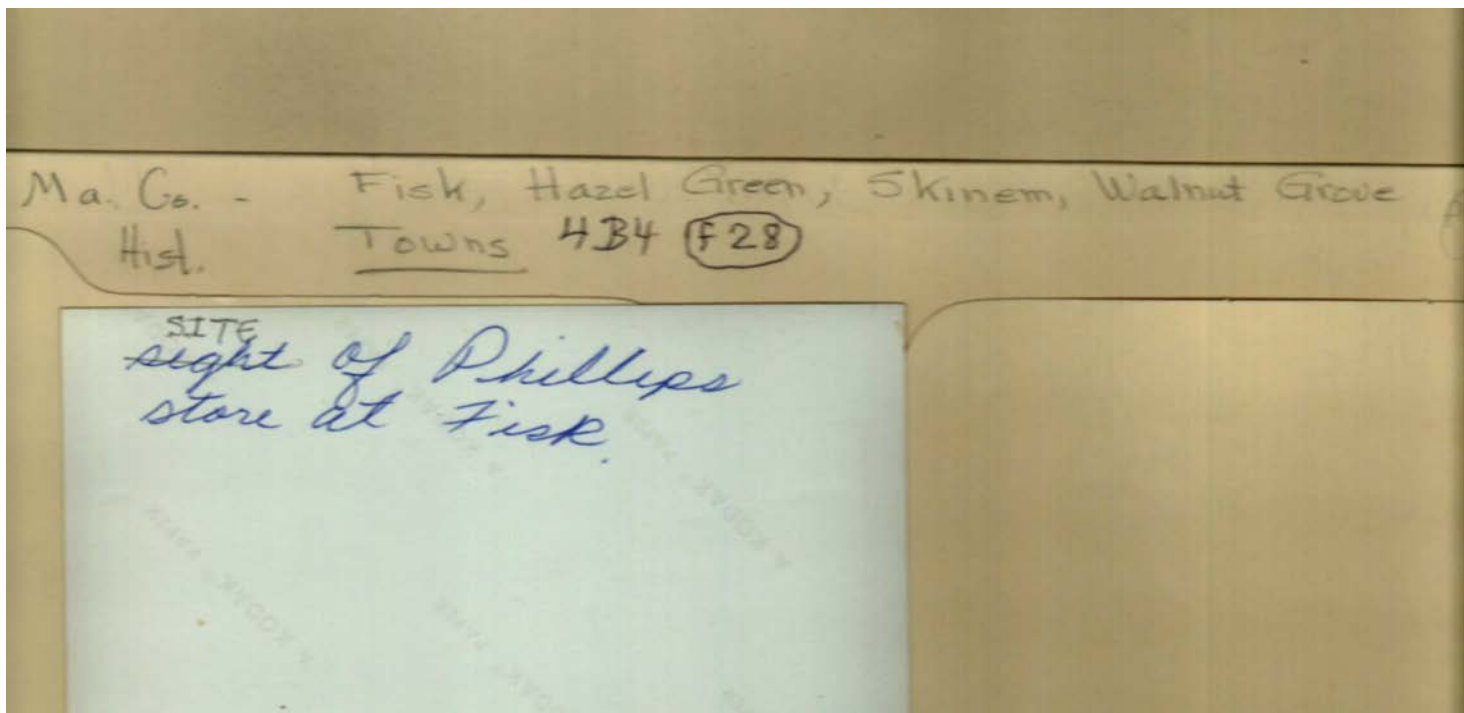 Ma. Co. - Fisk, Hazel Green, Skinem, Walnut Grove
Hist. Towns 4B4 F28
SITE
sight of Phillips
store at Fisk.